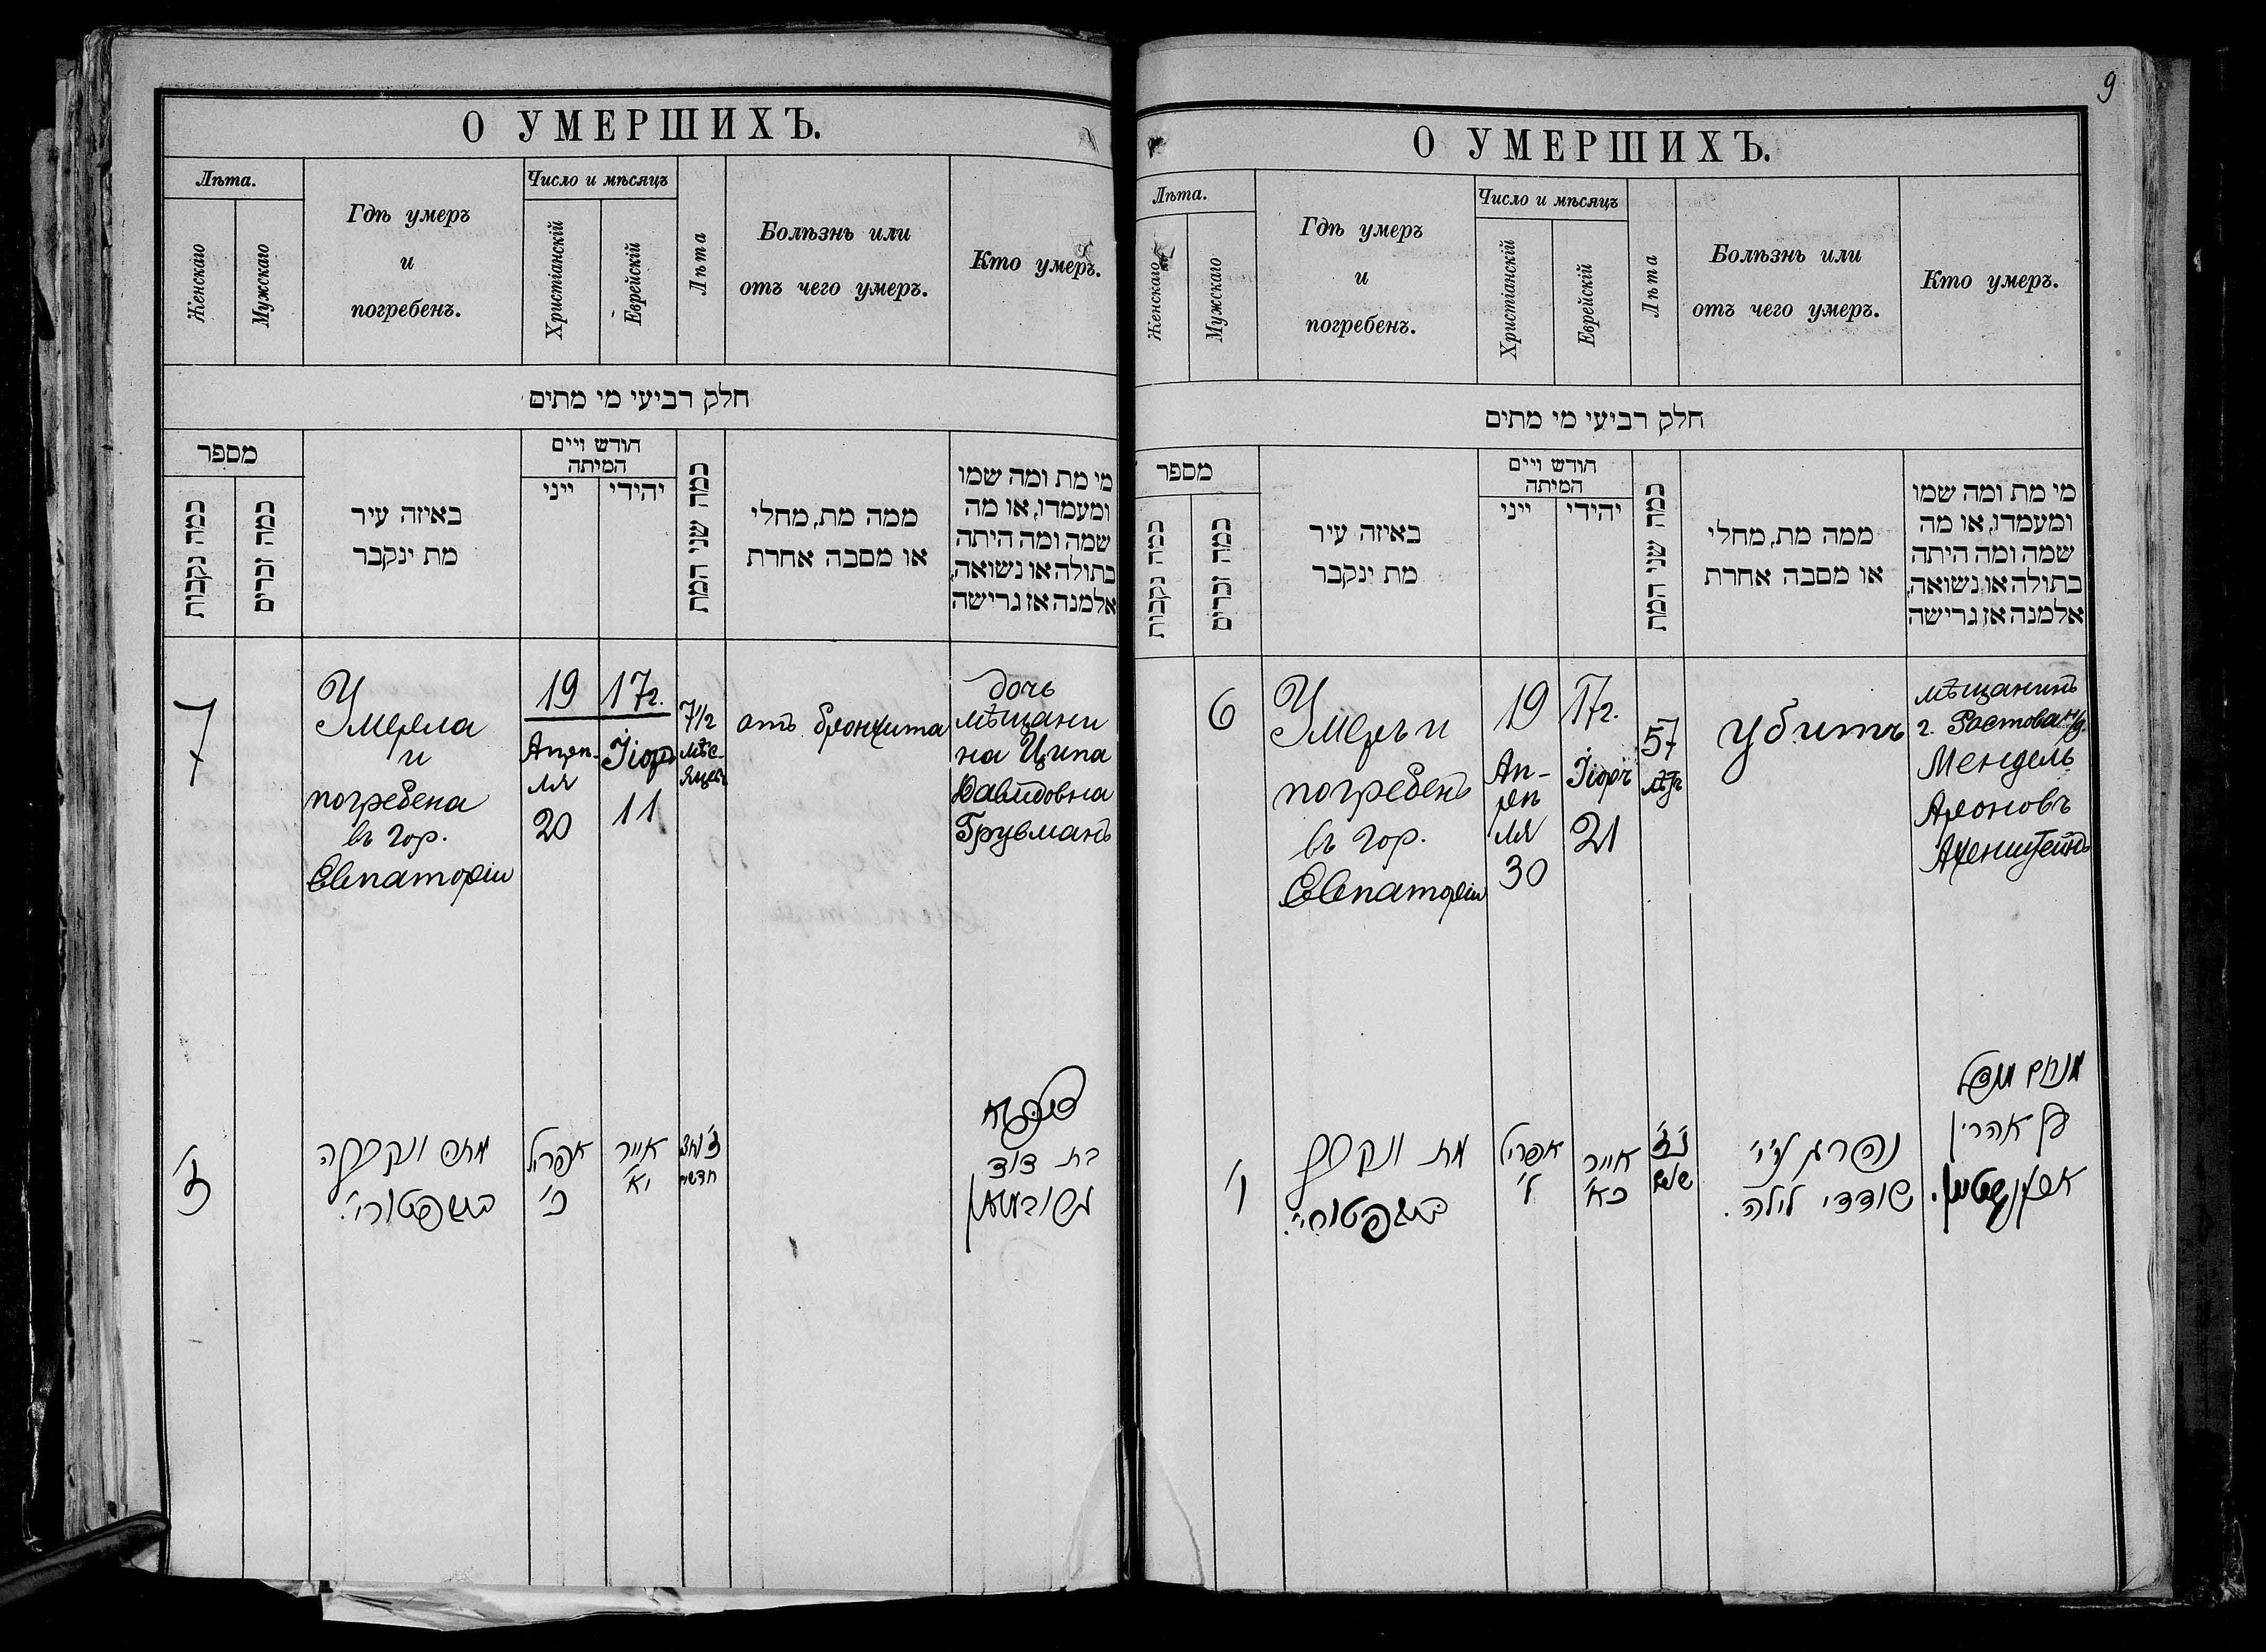 О УМЕРШИХЪ.
Лѣта.
Женскаго
Мужскаго
Гдѣ умеръ
и
погребенъ.
Число и мѣсяцъ
Христіанскій
Еврейскій
Лѣта
Болѣзнь или
отъ чего умеръ.
Кто умеръ.
חלק רביעי מי מתים
מספר
כמה נקבות
כמה זכרים
באיזה עיר
מת ינקבר
חודש ויים
המיתה
ייני
יהידי
כמה שני המת
ממה מת, מחלי
או מסבה אחרת
מי מת ומה שמו
ומעמדו, או מה
שמה ומה היתה
בתולה או נשואה,
אלמנה אז גרישה
7
Умерла
и
погребена
въ гор.
Евпаторіи
19
Апре-
ля
20
17г.
Іюръ
11
7 1/2
мѣс-
яцевъ
отъ бронхита
дочь
мѣщани
на Ципа
Давидовна
Грувманъ
ז'
מתה ונקברה
אפריל
כ'
אייר
י"א
ז' וחצי
חדשים
בת דוד
9
О УМЕРШИХЪ.
Лѣта.
Женскаго
Мужскаго
Гдѣ умеръ
и
погребенъ.
Число и мѣсяцъ
Христіанскій
Еврейскій
Лѣта
Болѣзнь или
отъ чего умеръ.
Кто умеръ.
חלק רביעי מי מתים
מספר
כמה נקבות
כמה זכרים
באיזה עיר
מת ינקבר
חודש ויים
המיתה
ייני
יהידי
כמה שני המת
ממה מת, מחלי
או מסבה אחרת
מי מת ומה שמו
ומעמדו, או מה
שמה ומה היתה
בתולה או נשואה,
אלמנה אז גרישה
6
Умеръ и
погребенъ
въ гор.
Евпаторіи
19
Ап-
ре
ля
30
17г.
Іюръ
21
57
лѣтъ
убитъ
мѣщанинъ
г. Ростова н/д.
Мендель
Ароновъ
ו'
מת ונקבר
אפריל
ל'
אייר
כ"א
נ"ז
שנים
נהרג ע"י
שודדי לילה.
מנחם מענדל
בן אהרן